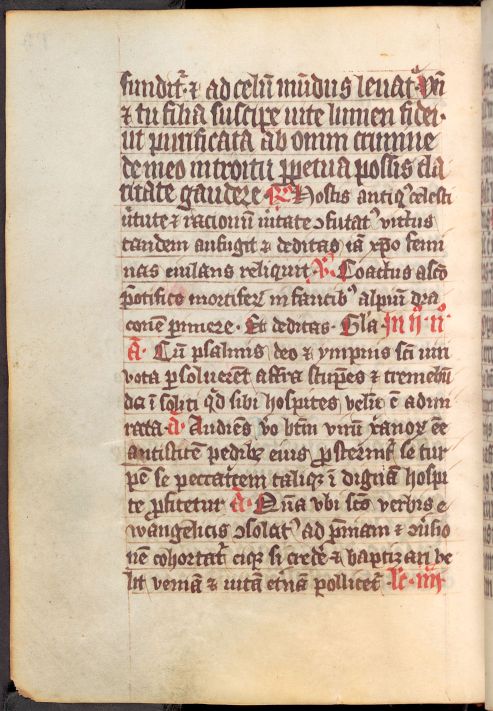 fundit᷑ ⁊ ad celũ mũdus leuat᷑ Vñ
⁊ tu filia suscipe uite lumen fidei·
ut purificata ab omni crimine
de meo introitu ꝑpetua possis cla
ritate gaudere · ℟ Hostis antiqꝰ celesti
ũtute ⁊ racionũ ũitate ꝯfutatꝰ victus
tandem aufugit ⁊ deditas iã xp̃o femi
nas eiulans reliquit · ℣ Coactus a sc̃o
põtifice mortiferũ in faucibꝰ alpiũ dra
conẽ ꝑimere · Et deditas · Gl'a · Jn ij · n̊
A · Cũ psalmis deo ⁊ ympnis sc̃i uiri
vota ꝑsoluerẽt affra stupẽs ⁊ tremebũ
da ĩ soliti qd̓ sibi hospites velĩt ẽ admi
rata · A · Audiẽs ṽo btm̃ virũ x̃anoꝝ eẽ
antistitẽ pedibꝫ eius ꝓsternit᷑ se tur
pẽ se peccat͛cem taliqꝫ ĩ dignã hospi
te ꝓfitetur A · Quã vbi sc̃s verbis e
wangelicis ꝯsolat᷑ ad p̃niam ⁊ ꝯũsio
nẽ cohortat᷑ eiqꝫ si crede᷑ ⁊ baptizari ve
lit veniã ⁊ uitã et̓nã pollicet᷑ · lc̃ · iiij·